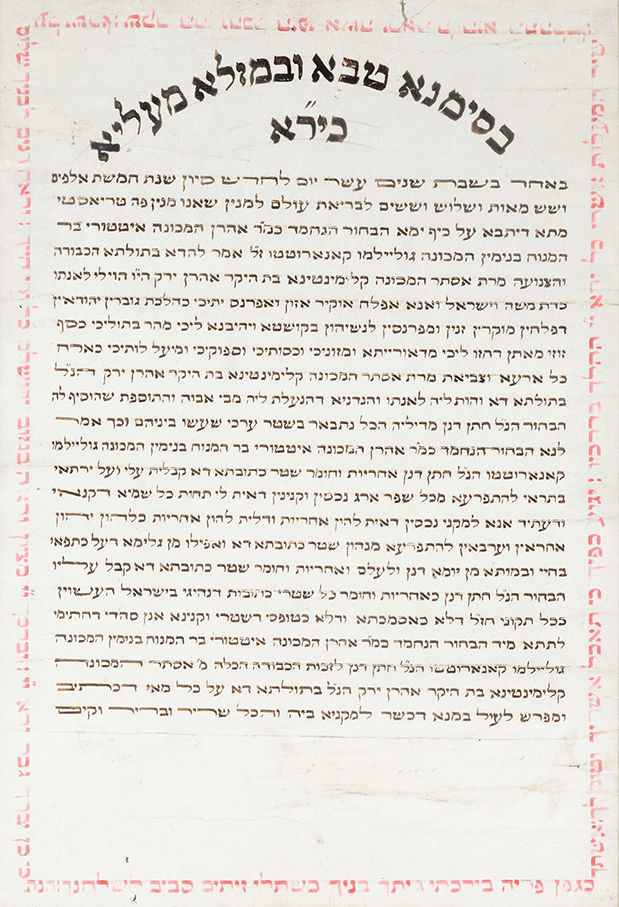 בסימנא טבא ובמזלא מעליא
כי״רא
באחד בשבת שנים עשר יום לחדש סיון שנת חמשת אלפים
ושש מאות ושלוש וששים לבריאת עולם למנין שאנו מנין פה טריאסטי
מתא דיתבא על כיף ימא הבחור הנחמד כמ״ר אהרן המכונה איטטורי בר
המנוח בנימין המכונה גוליילמו קאנארוטטו ז״ל אמר להדא בתולתא הכבודה
והצנועה מרת אסתר המכונה קלימינטינא בת היקר אהרן ירק ה״ו הוילי לאנתו
כדת משה וישראל ואנא אפלח אוקיר אזון ואפרנס יתיכי כהלכת גוברין יהודאין
דפלחין מוקרין זנין ומפרנסין לנשיהון בקושטא ויהיבנא ליכי מהר בתוליכי כסף
זוזי מאתן דחזו ליכי מדאורייתא ומזוניכי וכסותיכי וספוקיכי ומיעל לותיכי כארח
כל ארעא וצביאת מרת אסתר המכונה קלימינטינא בת היקר אהרן ירק הנ״ל
בתולתא דא והות ליה לאנתו והנדניא דהנעלת ליה מבי אבוה והתוספת שהוסיף לה
הבחור הנ״ל חתן דנן מדיליה הכל נתבאר בשטר ערכי שעשו ביניהם וכך אמר
לנא הבחור הנחמד כמ״ר אהרן המכונה איטטורי בר המנוח בנימין המכונה גוליילמו
קאנארוטטו הנ״ל חתן דנן אחריות וחומר שטר כתובתא דא קבלית עלי ועל ירתאי
בתראי להתפרעא מכל שפר ארג נכסין וקנינין דאית לי תחות כל שמיא דקנאי
ודעתיד אנא למקני נכסין דאית להון אחריות ודלית להון אחריות כלהון יהון
אחראין וערבאין להתפרעא מנהון שטר כתובתא דא ואפילו מן גלימא דעל כתפאי
בחיי ובמותא מן יומא דנן ולעלם ואחריות וחומר שטר כתובתא דא קבל עליו
הבחור הנ״ל חתן דנן כאחריות וחומר כל שטרי כתובות דנהיגי בישראל העשוין
ככל תקוני חז״ל דלא כאסמכתא ודלא כטופסי דשטרי וקנינא אנן סהדי דחתימי
לתתא מיד הבחור הנחמד כמ״ר אהרן המכונה איטטורי בר המנוח בנימין המכונה
גוליילמו קאנארוטטו הנ״ל חתן דנן לזכות הכבודה הכלה מ׳ אסתר המכונה
קלימינטינא בת היקר אהרן ירק הנ״ל בתולתא דא על כל מאי דכתיב
ומפרש לעיל במנא דכשר למקניא ביה והכל שריר ובריר וקים
כגפן פריה בירכתי ביתך בניך כשתלי זיתים סביב לשלחנך הנה